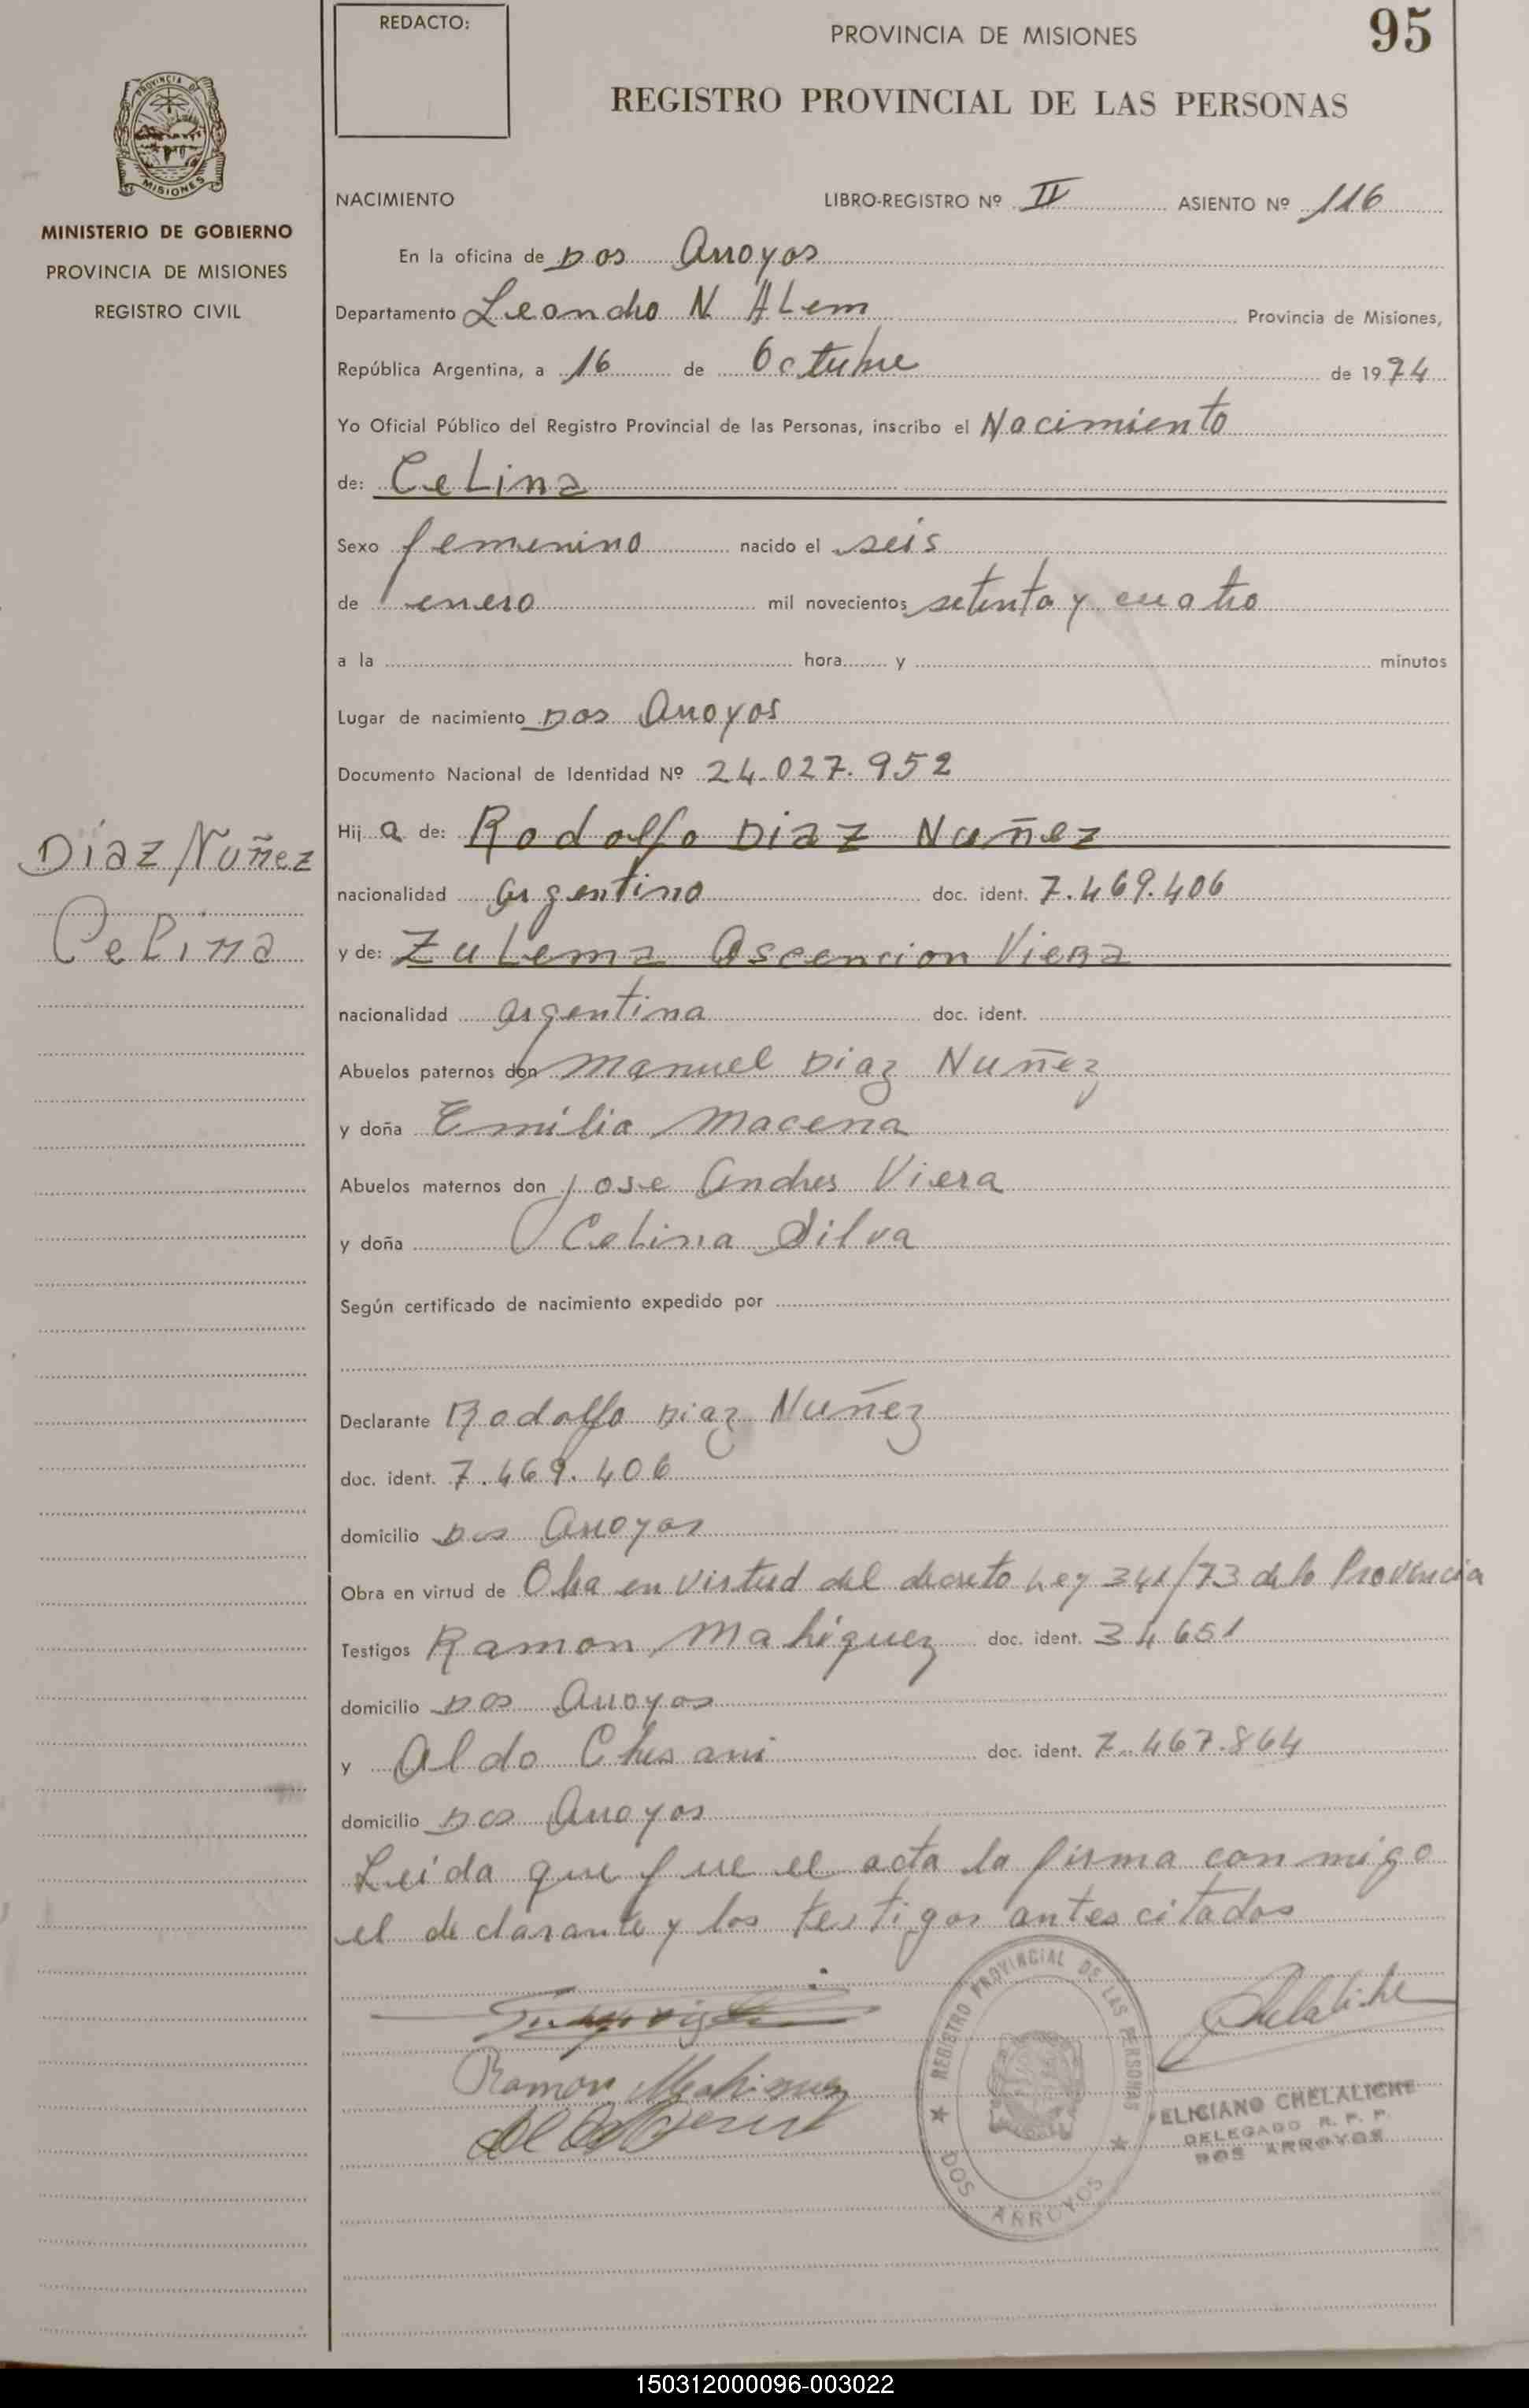 REDACTO:
PROVINCIA DE MISIONES
95
REGISTRO PROVINCIAL DE LAS PERSONAS
PROVINCIA DE
MISIONES
MINISTERIO DE GOBIERNO
PROVINCIA DE MISIONES
REGISTRO CIVIL
NACIMIENTO LIBRO-REGISTRO Nº II ASIENTO Nº 116
En la oficina de Dos Arroyos
Departamento Leandro N. ALem Provincia de Misiones,
República Argentina, a 16 de Octubre de 1974
Yo Oficial Público del Registro Provincial de las Personas, inscribo el Nacimiento
de: CeLina
Sexo femenino nacido el seis
de enero mil novecientos setenta y cuatro
a la hora y minutos
Lugar de nacimiento Dos Arroyos
Documento Nacional de Identidad Nº 24.027.952
Hij a de: Rodolfo Diaz Nuñez
Díaz Nuñez
Celina
nacionalidad argentino doc. ident. 7.469.406
y de: ZuLema Ascencion Viera
nacionalidad argentina doc. ident.
Abuelos paternos don Manuel Diaz Nuñez
y doña Emilia Macena
Abuelos maternos don Jose Andres Viera
y doña Celina Silva
Según certificado de nacimiento expedido por
Declarante Rodolfo Diaz Nuñez
doc. ident. 7.469.406
domicilio Dos Arroyos
Obra en virtud de Obra en virtud del decreto Ley 341/73 de la Provincia
Testigos Ramon Mahiquez doc. ident. 34651
domicilio Dos Arroyos
y Aldo doc. ident. 7.467.864
domicilio Dos Arroyos
Leida que fue el acta la firma con migo
el declarante y los testigos antes citados
Ramon Mahiquez
Chelaliche
REGISTRO PROVINCIAL DE LAS PERSONAS
DOS ARROYOS
FELICIANO CHELALICHE
DELEGADO R. P. P.
DOS ARROYOS
150312000096-003022